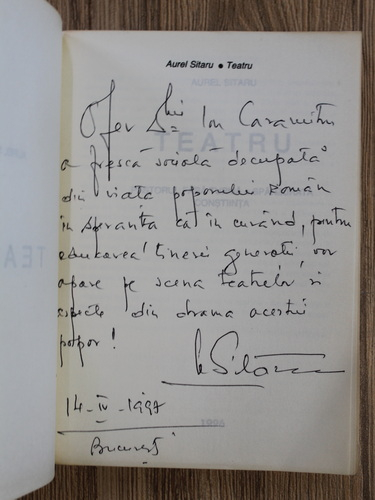 Aurel Sitaru • Teatru
Ofer Dlui Ion Caramitru
o frescă socială decupată
din viața poporului român
în speranța că în curând, pentru
educarea tinerei generații, vor
apare pe scena teatrelor și
aspecte din drama acestui
popor!
Sitaru
14-IV-1997
București
AUREL SITARU
TEATRU
CONSTIINTA
1996